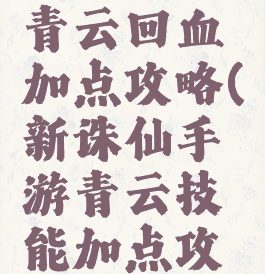 青云回血
加点攻略(
新诛仙手
游青云技
能加点攻